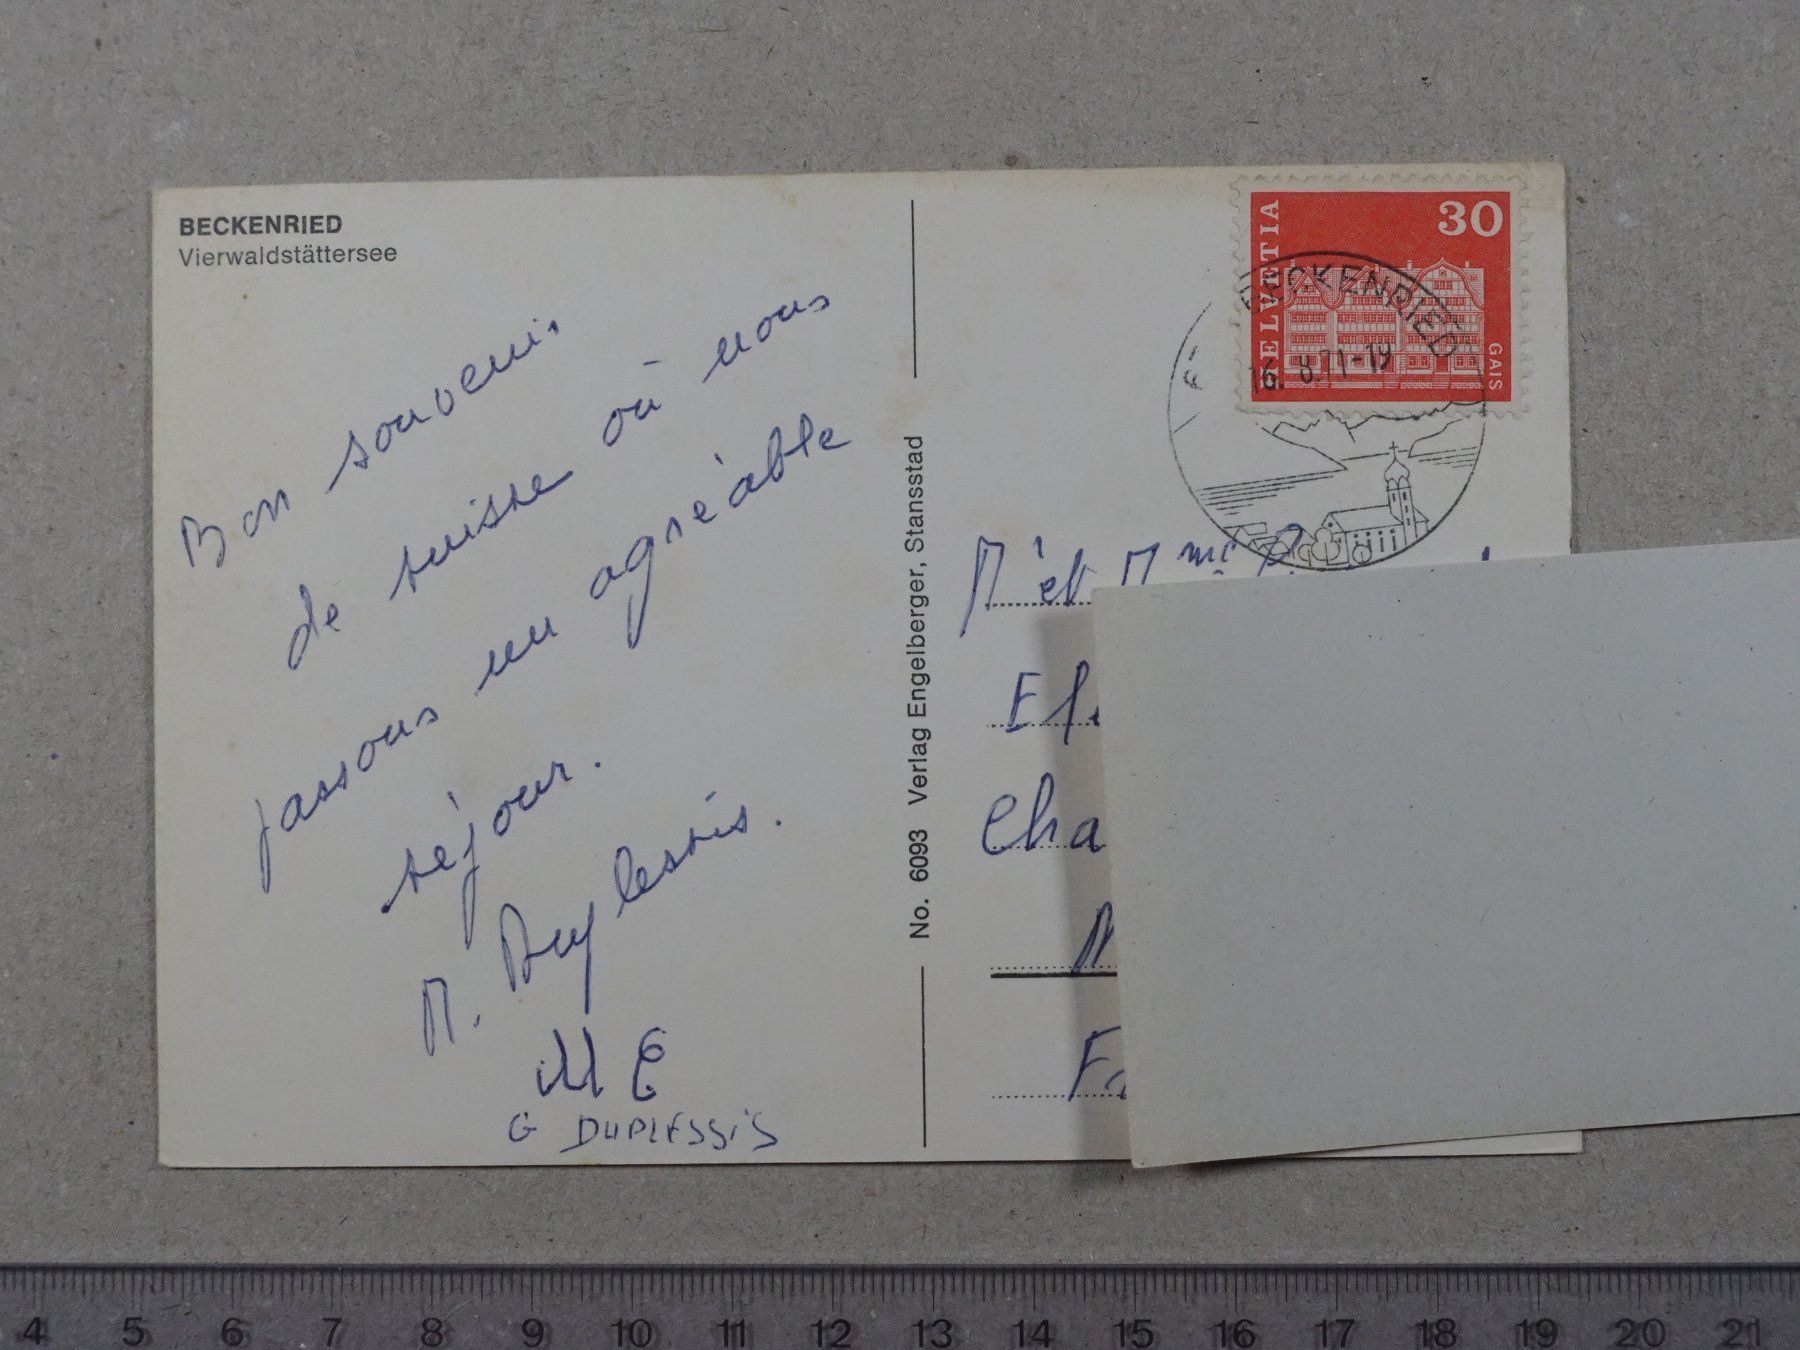 BECKENRIED
Vierwaldstättersee
Bon souvenir
de suisse où nous
passons un agréable
séjour.
M. Duplessis.
ME
G DUPLESSIS
No. 6093 Verlag Engelberger, Stansstad
HELVETIA
30
GAIS
BECKENRIED
16. 8.71-19
M et Mme
Cha
4 5 6 7 8 9 10 11 12 13 14 15 16 17 18 19 20 21